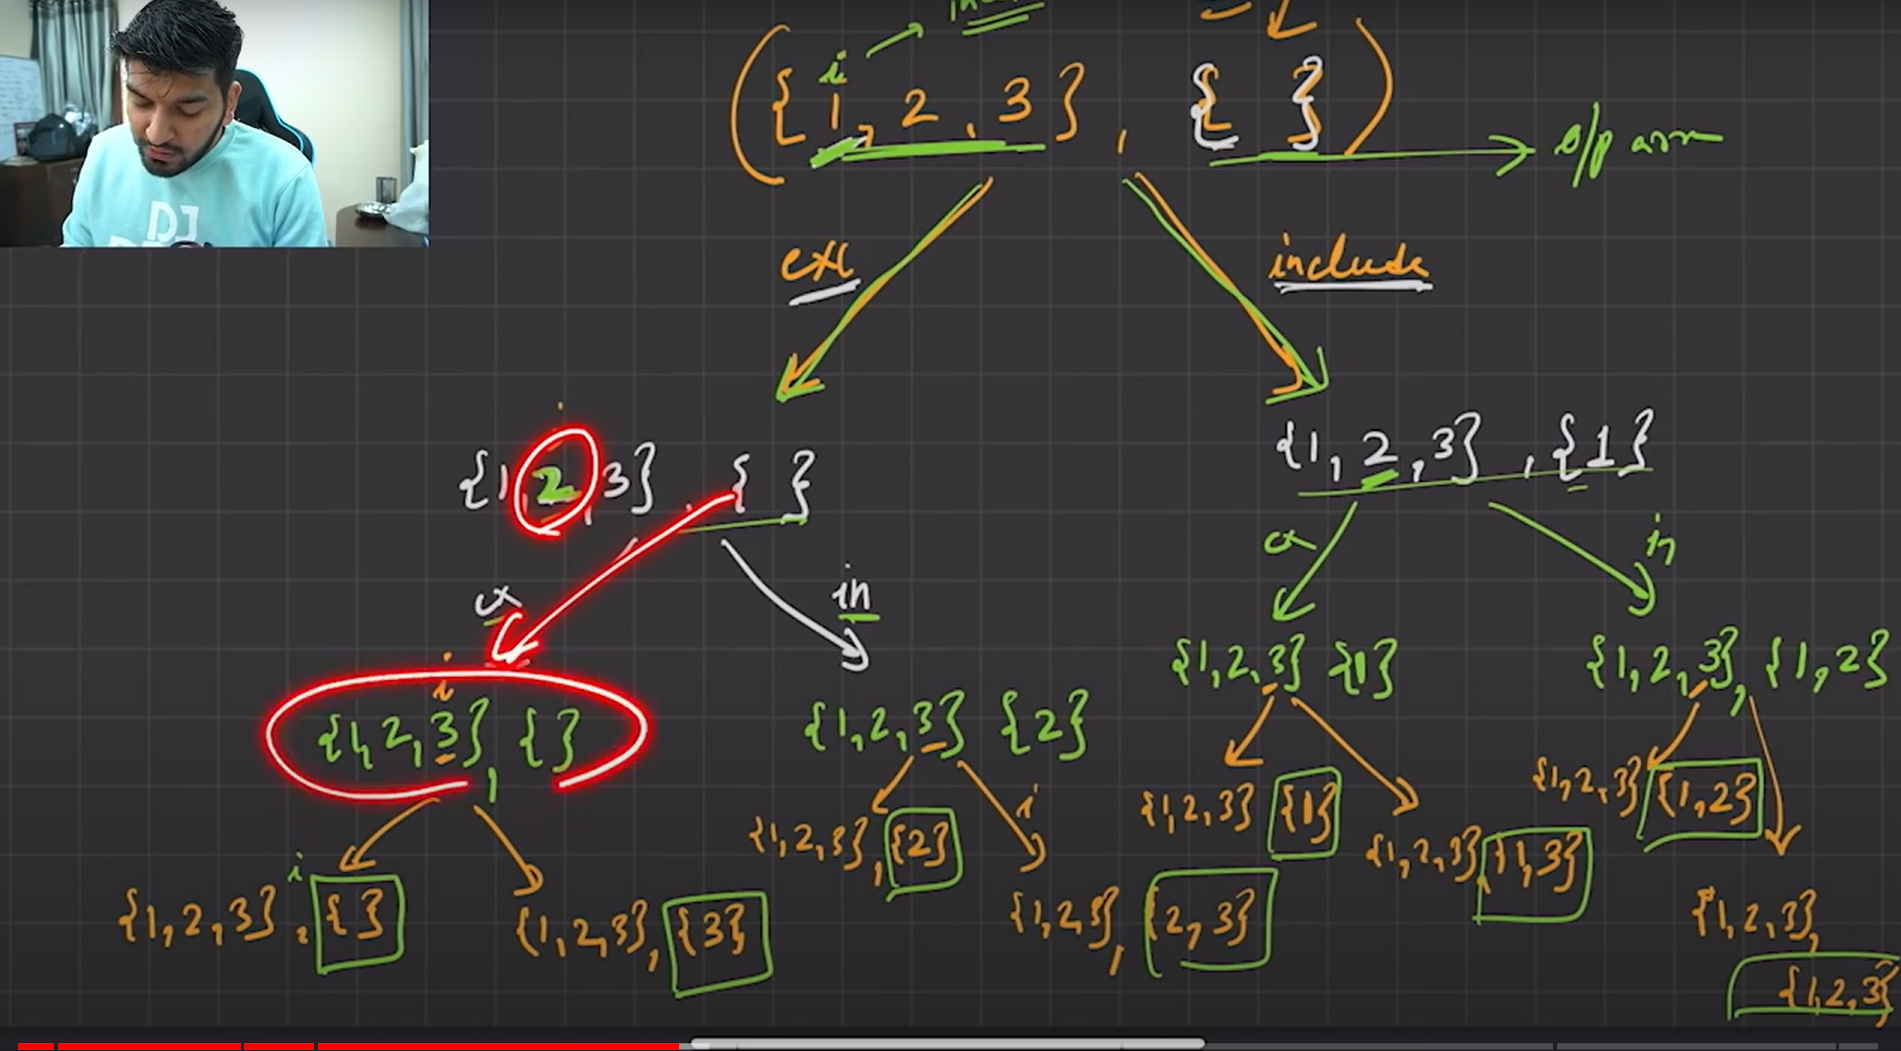 i
{1, 2, 3}, { }
o/p arr
exc
include
{1, 2, 3}, { }
{1, 2, 3}, {1}
ex
in
ex
in
i
{1, 2, 3}, {}
{1, 2, 3} {2}
{1, 2, 3} {1}
{1, 2, 3}, {1, 2}
i
i
{1, 2, 3}, { }
{1, 2, 3}, {3}
{1, 2, 3}, {2}
{1, 2, 3}, {2, 3}
{1, 2, 3} {1}
{1, 2, 3} {1, 3}
{1, 2, 3} {1, 2}
{1, 2, 3},
{1, 2, 3}
DJ